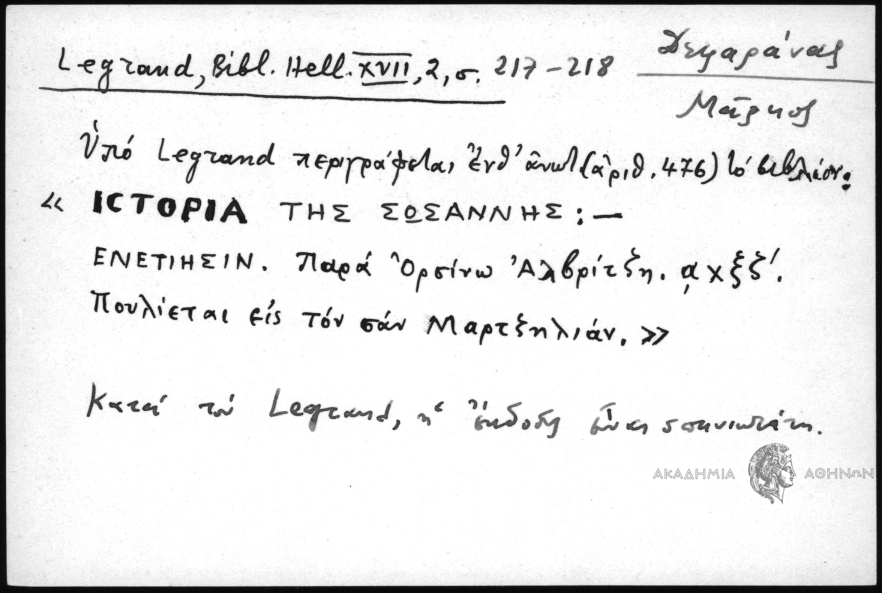 Legrand, Bibl. Hell. XVII, 2, σ. 217-218
Δεφαράνας
Μάρκος
Ὑπό Legrand περιγράφεται ἐνθ' ἀνωτ. (ἀριθ. 476) τό βιβλίον:
« ΙCΤΟΡΙΑ ΤΗΣ ΣΩΣΑΝΝΗΣ : —
ΕΝΕΤΙΗΣΙΝ. Παρά Ὀρσίνω Ἀλβρίτζη. ͵αχξζ'.
Πουλίεται εἰς τόν σάν Μαρτζηλιάν. »
Κατά τόν Legrand, ἡ ἔκδοσις εἶναι σπανιωτάτη.
ΑΚΑΔΗΜΙΑ ΑΘΗΝΩΝ